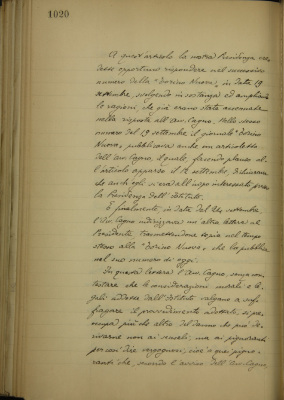 1020
A quest'articolo la nostra Presidenza cre-
dette opportuno rispondere nel successivo
numero della "Torino Nuova", in data 19
settembre, svolgendo in sostanza ed ampliando
le ragioni, che già erano state accennate
nella risposta all'avv. Cogno. Nello stesso
numero del 19 settembre il giornale "Torino
Nuova", pubblicava anche un articoletto
dell'avv. Cogno, il quale, facendo plauso al-
l'articolo apparso il 12 settembre, dichiarava
che anch'egli s'era all'uopo interessato presso
la Presidenza dell'Istituto.
E finalmente, in data del 24 settembre
l'avv. Cogno indirizzava un'altra lettera al
Presidente, trasmettendone copia nel tempo
stesso alla "Torino Nuova", che la pubblica
nel suo numero di oggi.
In questa lettera l'avv. Cogno, senza con-
testare che le considerazioni morali e le-
gali addotte dall'Istituto valgano a suf-
fragare il provvedimento adottato, si preoc-
cupa più che altro del danno che può de-
rivarne non ai reali, ma ai pignoranti
per così dire vergognosi, cioè a quei pigno-
ranti che, secondo l'avviso dell'avv. Cogno,